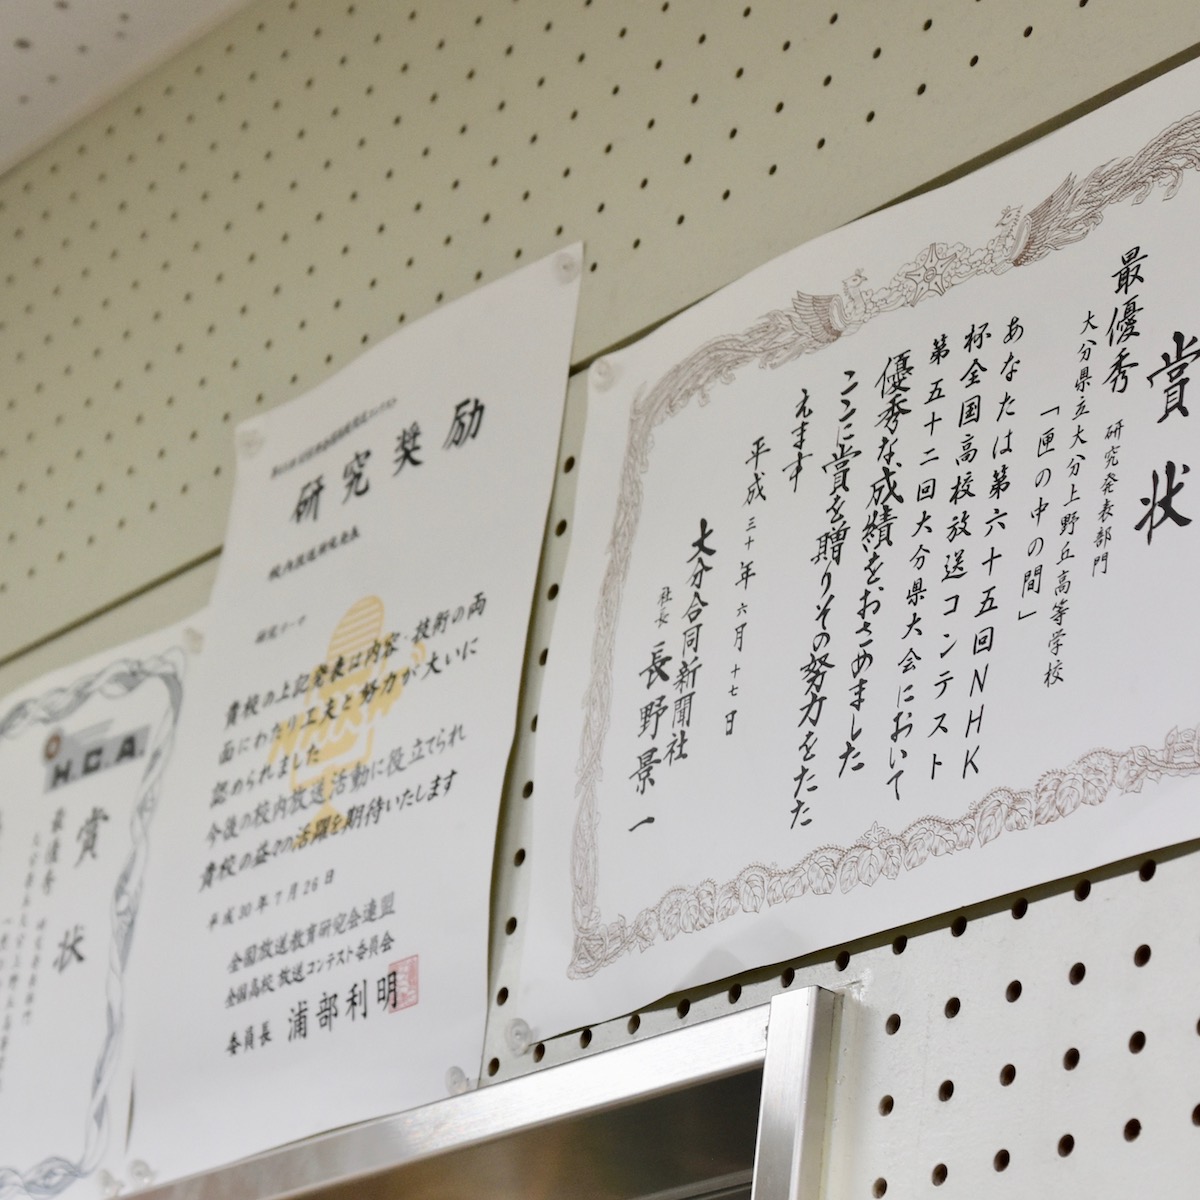 賞状
最優秀 研究発表部門
大分県立大分上野丘高等学校
「匣の中の間」
あなたは第六十五回NHK
杯全国高校放送コンテスト
第五十二回大分県大会において
優秀な成績をおさめました
ここに賞を贈りその努力をたた
えます
平成三十年六月十七日
大分合同新聞社
社長 長野景一
研究奨励
校内放送研究発表
研究テーマ
貴校の上記発表は内容・技術の両
面にわたり工夫と努力が大いに
認められました
今後の校内放送活動に役立てられ
貴校の益々の活躍を期待いたします
平成30年7月26日
全国放送教育研究会連盟
全国高校放送コンテスト委員会
委員長 浦部利明
H.C.A.
賞状
最優秀 研究発表部門